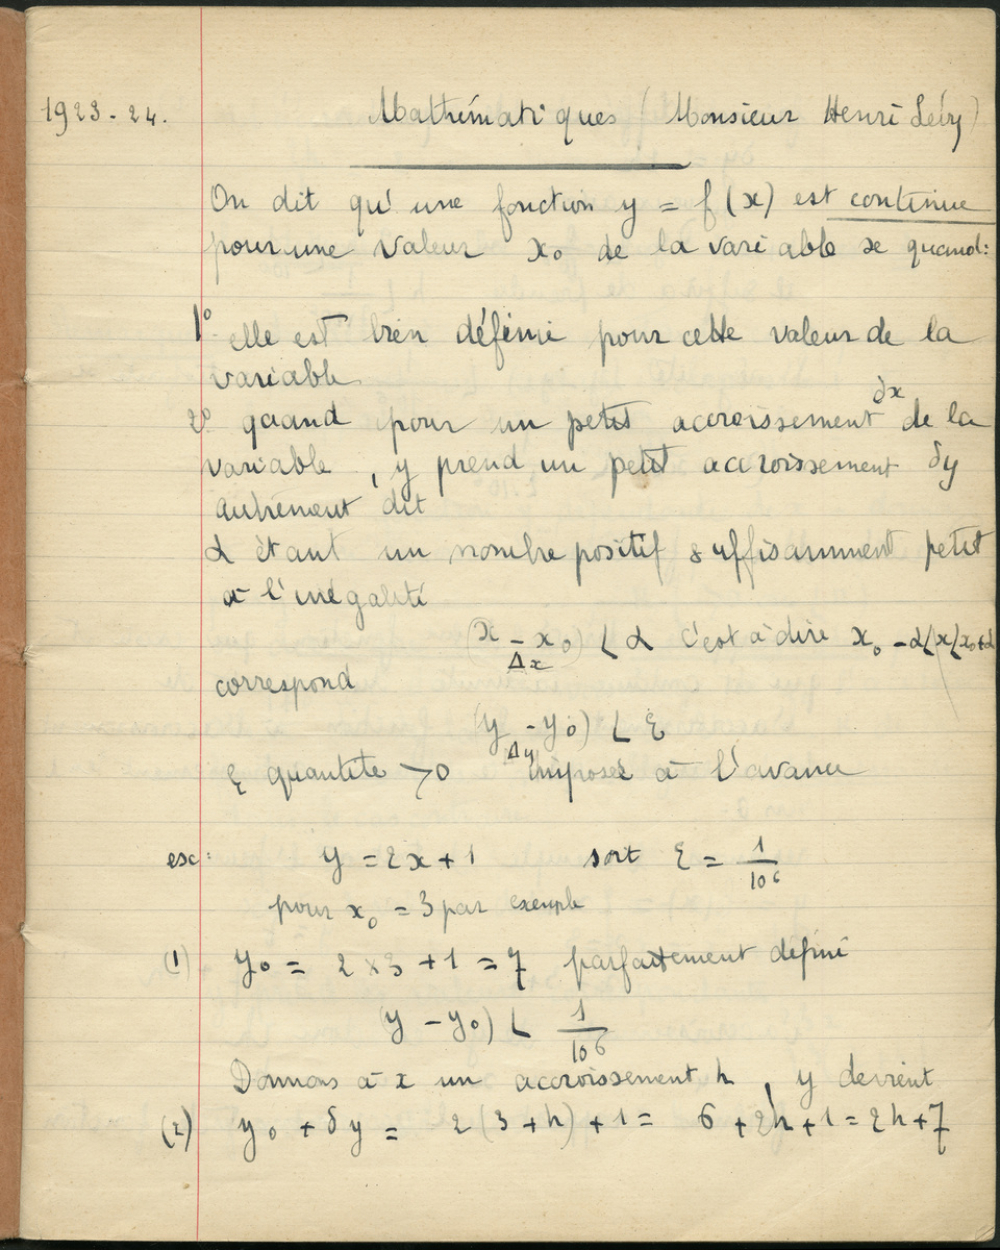 1923-24.
Mathématiques (Monsieur Henri Lévy)
On dit qu'une fonction y = f(x) est continue
pour une valeur x₀ de la variable x quand:
1° elle est bien définie pour cette valeur de la
variable
2° quand pour un petit accroissement δx de la
variable, y prend un petit accroissement δy
autrement dit
α étant un nombre positif suffisamment petit
à l'inégalité
(x - x₀) < α c'est à dire x₀ - α < x < x₀ + α
Δx
correspond
(y - y₀) < ε
Δy
ε quantité > 0 imposée à l'avance
ex: y = 2x + 1 soit ε = 1/10⁶
pour x₀ = 3 par exemple
(1) y₀ = 2 × 3 + 1 = 7 parfaitement défini
(y - y₀) < 1/10⁶
Donnons à x un accroissement h, y devient
(2) y₀ + δy = 2(3 + h) + 1 = 6 + 2h + 1 = 2h + 7